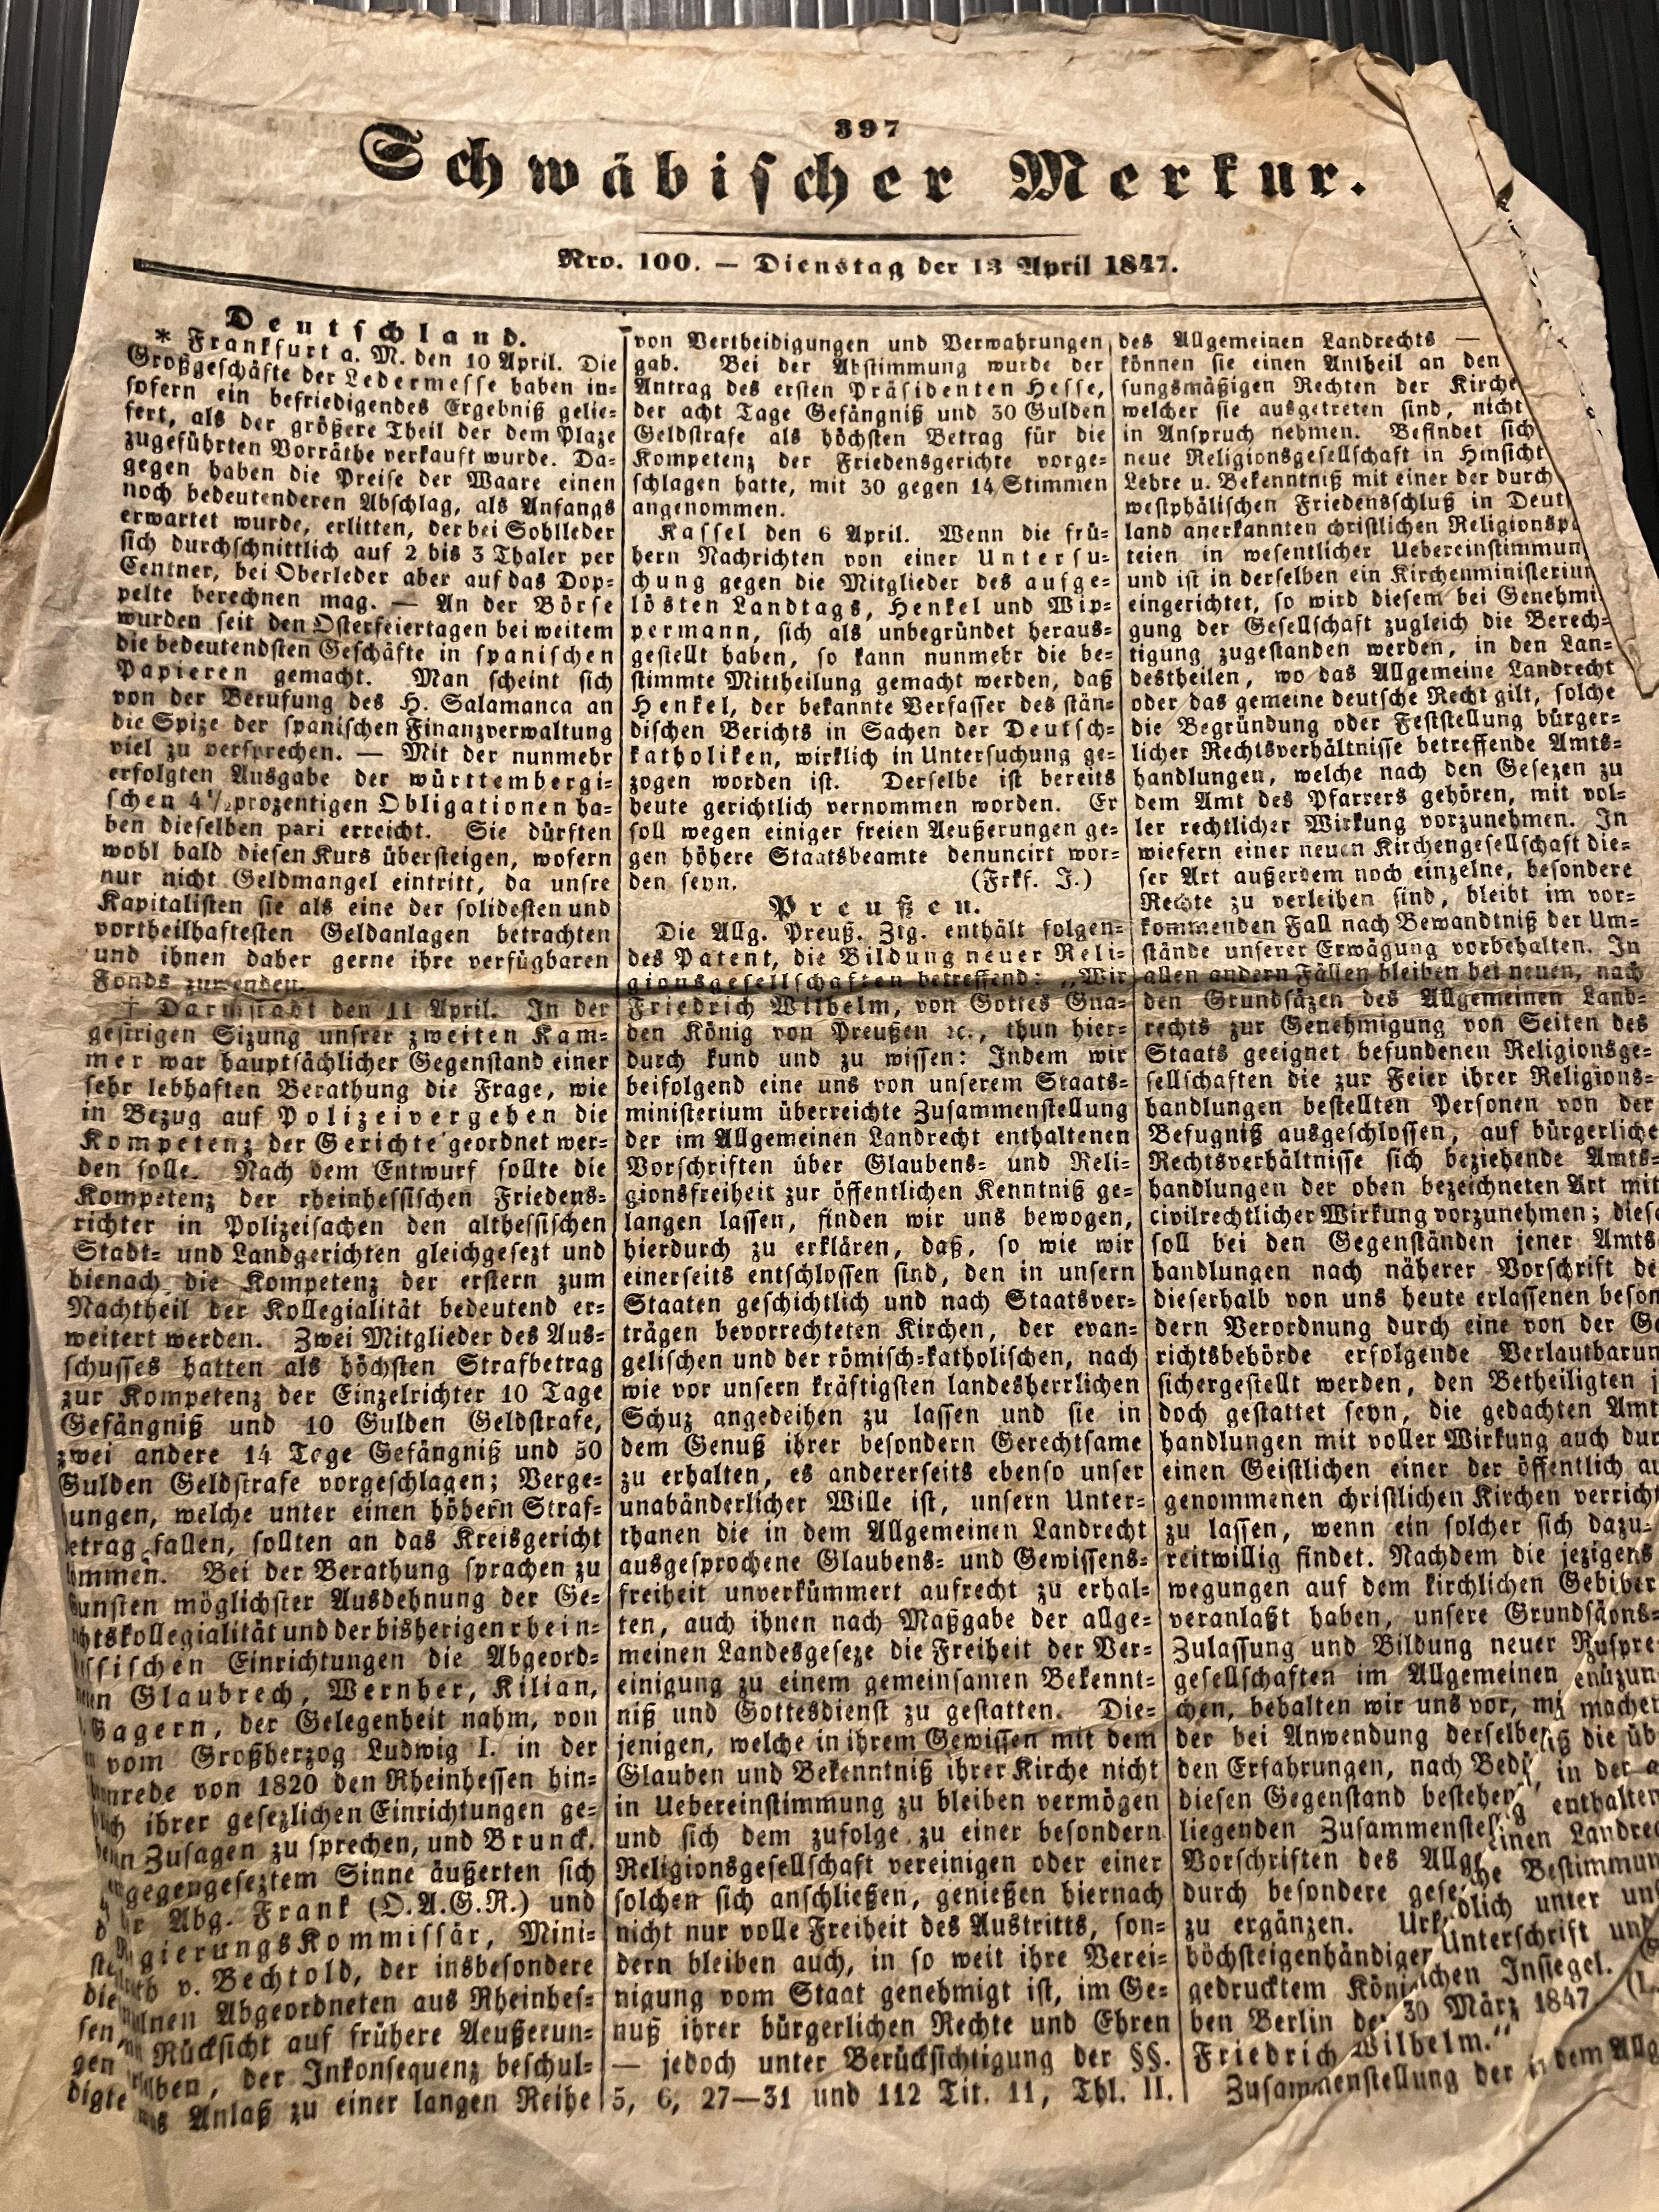 397
Schwäbischer Merkur.
Nro. 100. — Dienstag der 13 April 1847.
Deutschland.
* Frankfurt a. M. den 10 April. Die
Großgeschäfte der Ledermesse haben in-
sofern ein befriedigendes Ergebniß gelie-
fert, als der größere Theil der dem Plaze
zugeführten Vorräthe verkauft wurde. Da-
gegen haben die Preise der Waare einen
noch bedeutenderen Abschlag, als Anfangs
erwartet wurde, erlitten, der bei Sohlleder
sich durchschnittlich auf 2 bis 3 Thaler per
Centner, bei Oberleder aber auf das Dop-
pelte berechnen mag. — An der Börse
wurden seit den Osterfeiertagen bei weitem
die bedeutendsten Geschäfte in spanischen
Papieren gemacht. Man scheint sich
von der Berufung des H. Salamanca an
die Spize der spanischen Finanzverwaltung
viel zu versprechen. — Mit der nunmehr
erfolgten Ausgabe der württembergi-
schen 4½prozentigen Obligationen ha-
ben dieselben pari erreicht. Sie dürften
wohl bald diesen Kurs übersteigen, wofern
nur nicht Geldmangel eintritt, da unsre
Kapitalisten sie als eine der solidesten und
vortheilhaftesten Geldanlagen betrachten
und ihnen daher gerne ihre verfügbaren
Fonds zuwenden.
† Darmstadt den 11 April. In der
gestrigen Sizung unsrer zweiten Kam-
mer war hauptsächlicher Gegenstand einer
sehr lebhaften Berathung die Frage, wie
in Bezug auf Polizeivergehen die
Kompetenz der Gerichte geordnet wer-
den solle. Nach dem Entwurf sollte die
Kompetenz der rheinhessischen Friedens-
richter in Polizeisachen den althessischen
Stadt- und Landgerichten gleichgesezt und
hienach die Kompetenz der erstern zum
Nachtheil der Kollegialität bedeutend er-
weitert werden. Zwei Mitglieder des Aus-
schusses hatten als höchsten Strafbetrag
zur Kompetenz der Einzelrichter 10 Tage
Gefängniß und 10 Gulden Geldstrafe,
zwei andere 14 Tage Gefängniß und 50
Gulden Geldstrafe vorgeschlagen; Verge-
ungen, welche unter einen höhern Straf-
etrag fallen, sollten an das Kreisgericht
ommen. Bei der Berathung sprachen zu
unsten möglichster Ausdehnung der Ge-
htskollegialität und der bisherigen rhein-
ssischen Einrichtungen die Abgeord-
en Glaubrech, Wernher, Kilian,
Gagern, der Gelegenheit nahm, von
vom Großherzog Ludwig I. in der
rede von 1820 den Rheinhessen hin-
ich ihrer gesezlichen Einrichtungen ge-
Zusagen zu sprechen, und Brunck.
gegengeseztem Sinne äußerten sich
Abg. Frank (O.A.G.R.) und
gierungskommissär, Mini-
v. Bechtold, der insbesondere
die Abgeordneten aus Rheinhes-
sen, Rücksicht auf frühere Aeußerun-
gen der Inkonsequenz beschul-
digte Anlaß zu einer langen Reihe
von Vertheidigungen und Verwahrungen
gab. Bei der Abstimmung wurde der
Antrag des ersten Präsidenten Hesse,
der acht Tage Gefängniß und 30 Gulden
Geldstrafe als höchsten Betrag für die
Kompetenz der Friedensgerichte vorge-
schlagen hatte, mit 30 gegen 14 Stimmen
angenommen.
Kassel den 6 April. Wenn die frü-
hern Nachrichten von einer Untersu-
chung gegen die Mitglieder des aufge-
lösten Landtags, Henkel und Wip-
permann, sich als unbegründet heraus-
gestellt haben, so kann nunmehr die be-
stimmte Mittheilung gemacht werden, daß
Henkel, der bekannte Verfasser des stän-
dischen Berichts in Sachen der Deutsch-
katholiken, wirklich in Untersuchung ge-
zogen worden ist. Derselbe ist bereits
heute gerichtlich vernommen worden. Er
soll wegen einiger freien Aeußerungen ge-
gen höhere Staatsbeamte denuncirt wor-
den seyn. (Frkf. J.)
Preußen.
Die Allg. Preuß. Ztg. enthält folgen-
des Patent, die Bildung neuer Reli-
gionsgesellschaften betreffend: „Wir
Friedrich Wilhelm, von Gottes Gna-
den König von Preußen ꝛc., thun hier-
durch kund und zu wissen: Indem wir
beifolgend eine uns von unserem Staats-
ministerium überreichte Zusammenstellung
der im Allgemeinen Landrecht enthaltenen
Vorschriften über Glaubens- und Reli-
gionsfreiheit zur öffentlichen Kenntniß ge-
langen lassen, finden wir uns bewogen,
hierdurch zu erklären, daß, so wie wir
einerseits entschlossen sind, den in unsern
Staaten geschichtlich und nach Staatsver-
trägen bevorrechteten Kirchen, der evan-
gelischen und der römisch-katholischen, nach
wie vor unsern kräftigsten landesherrlichen
Schuz angedeihen zu lassen und sie in
dem Genuß ihrer besondern Gerechtsame
zu erhalten, es andererseits ebenso unser
unabänderlicher Wille ist, unsern Unter-
thanen die in dem Allgemeinen Landrecht
ausgesprochene Glaubens- und Gewissens-
freiheit unverkümmert aufrecht zu erhal-
ten, auch ihnen nach Maßgabe der allge-
meinen Landesgeseze die Freiheit der Ver-
einigung zu einem gemeinsamen Bekennt-
niß und Gottesdienst zu gestatten. Die-
jenigen, welche in ihrem Gewissen mit dem
Glauben und Bekenntniß ihrer Kirche nicht
in Uebereinstimmung zu bleiben vermögen
und sich dem zufolge zu einer besondern
Religionsgesellschaft vereinigen oder einer
solchen sich anschließen, genießen hiernach
nicht nur volle Freiheit des Austritts, son-
dern bleiben auch, in so weit ihre Verei-
nigung vom Staat genehmigt ist, im Ge-
nuß ihrer bürgerlichen Rechte und Ehren
— jedoch unter Berücksichtigung der §§.
5, 6, 27—31 und 112 Tit. 11, Thl. II.
des Allgemeinen Landrechts —
können sie einen Antheil an den
sungsmäßigen Rechten der Kirche
welcher sie ausgetreten sind, nicht
in Anspruch nehmen. Befindet sich
neue Religionsgesellschaft in Hinsicht
Lehre u. Bekenntniß mit einer der durch
westphälischen Friedensschluß in Deut
land anerkannten christlichen Religionspa
teien in wesentlicher Uebereinstimmun
und ist in derselben ein Kirchenministeriu
eingerichtet, so wird diesem bei Genehmi
gung der Gesellschaft zugleich die Berech-
tigung zugestanden werden, in den Lan-
destheilen, wo das Allgemeine Landrecht
oder das gemeine deutsche Recht gilt, solche
die Begründung oder Feststellung bürger-
licher Rechtsverhältnisse betreffende Amts-
handlungen, welche nach den Gesezen zu
dem Amt des Pfarrers gehören, mit vol-
ler rechtlicher Wirkung vorzunehmen. In
wiefern einer neuen Kirchengesellschaft die-
ser Art außerdem noch einzelne, besondere
Rechte zu verleihen sind, bleibt im vor-
kommenden Fall nach Bewandtniß der Um-
stände unserer Erwägung vorbehalten. In
allen andern Fällen bleiben bei neuen, nach
den Grundsäzen des Allgemeinen Land-
rechts zur Genehmigung von Seiten des
Staats geeignet befundenen Religionsge-
sellschaften die zur Feier ihrer Religions-
handlungen bestellten Personen von der
Befugniß ausgeschlossen, auf bürgerliche
Rechtsverhältnisse sich beziehende Amts-
handlungen der oben bezeichneten Art mit
civilrechtlicher Wirkung vorzunehmen; diese
soll bei den Gegenständen jener Amts
handlungen nach näherer Vorschrift de
dieserhalb von uns heute erlassenen beson
dern Verordnung durch eine von der Ge
richtsbehörde erfolgende Verlautbarun
sichergestellt werden, den Betheiligten j
doch gestattet seyn, die gedachten Amt
handlungen mit voller Wirkung auch dur
einen Geistlichen einer der öffentlich au
genommenen christlichen Kirchen verricht
zu lassen, wenn ein solcher sich dazu
reitwillig findet. Nachdem die jezigen
wegungen auf dem kirchlichen Gebi
veranlaßt haben, unsere Grundsä
Zulassung und Bildung neuer R
gesellschaften im Allgemeinen
chen, behalten wir uns vor, mi
der bei Anwendung derselbe
den Erfahrungen, nach Bed
diesen Gegenstand bestehen
liegenden Zusammenstel
Vorschriften des Allg
durch besondere gese
zu ergänzen. Urk
höchsteigenhändiger Unterschrift und
gedrucktem König lichen Insiegel.
ben Berlin de 30 März 1847
Friedrich Wilhelm.“
Zusammenstellung der in dem Allg